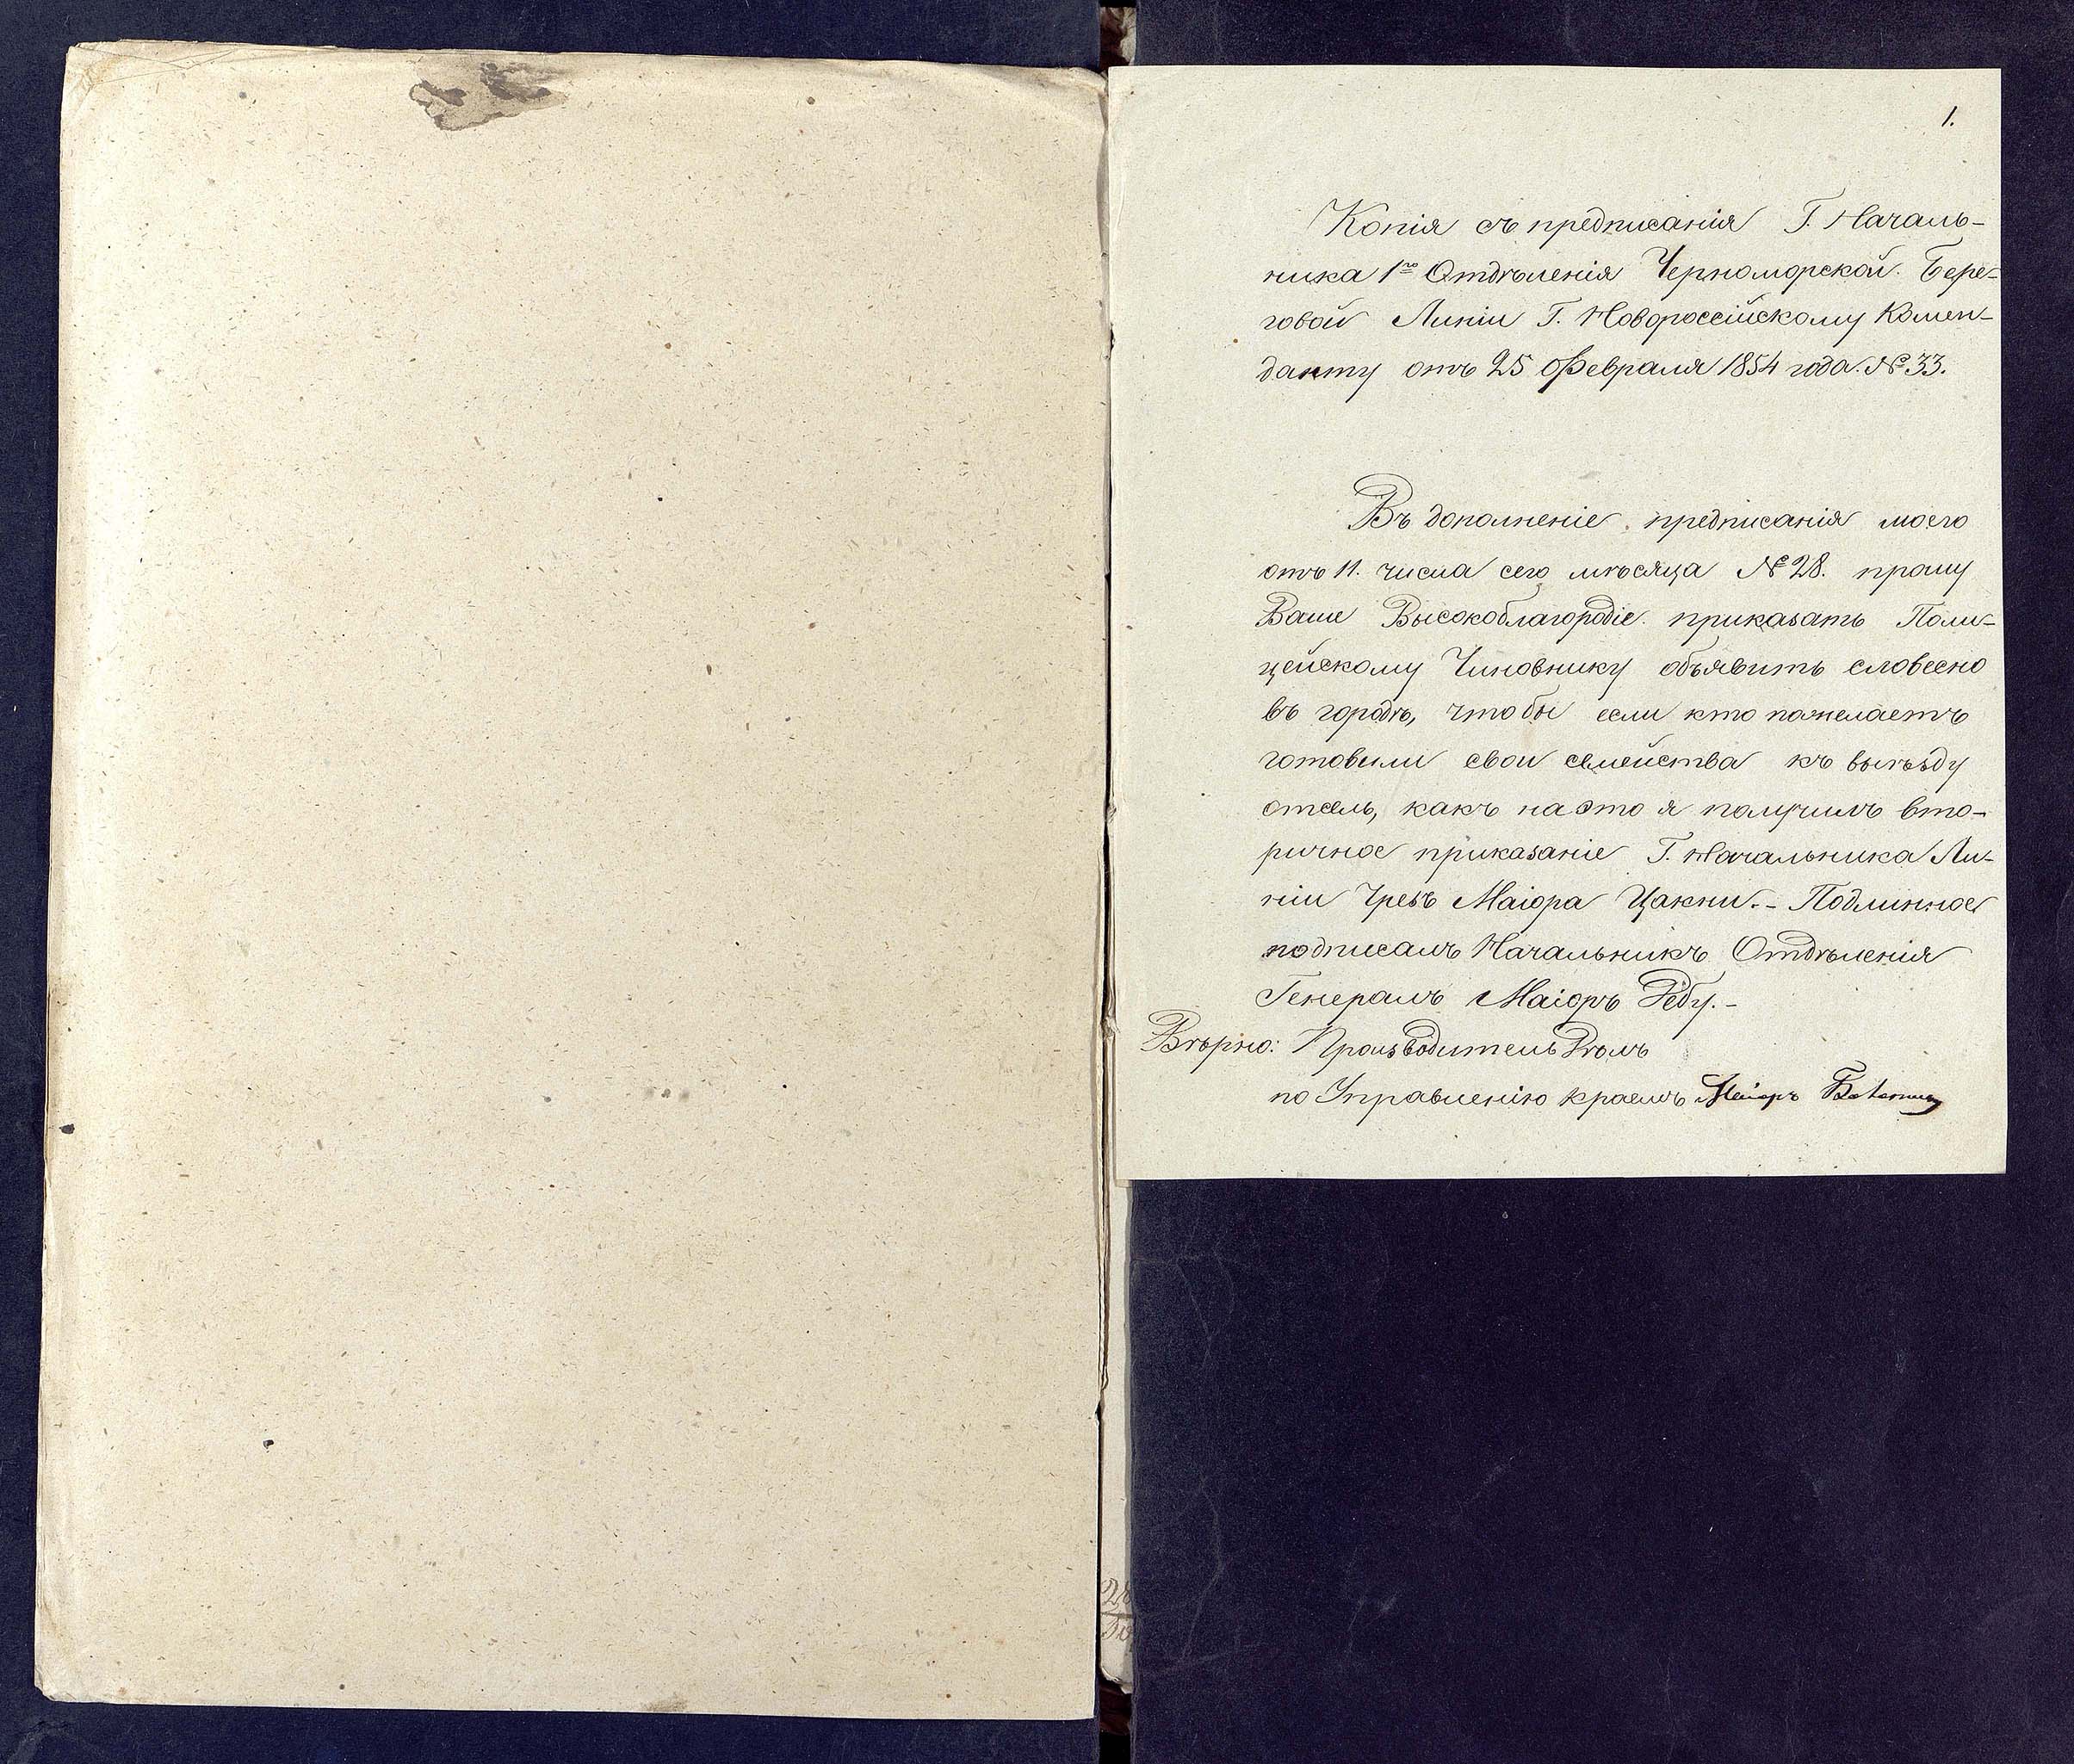 1.
Копія съ предписанія Г. Началь-
ника 1го Отдѣленія Черноморской Бере-
говой Линіи Г. Новороссійскому Комен-
данту отъ 25 Февраля 1854 года. № 33.
Въ дополненіе предписанія моего
отъ 11. числа сего мѣсяца № 28. прошу
Ваше Высокоблагородіе приказать Поли-
цейскому Чиновнику объявить словесно
въ городѣ, чтобы если кто пожелаетъ
готовили свои семейства къ выѣзду
отсель, какъ на это я получилъ вто-
ричное приказаніе Г. Начальника Ли-
ніи Чрезъ Маіора Цакни.- Подлинное
подписалъ Начальникъ Отдѣленія
Генералъ Маіоръ Дебу.-
Вѣрно: Производитель Дѣлъ
по Управленію краемъ Маіоръ